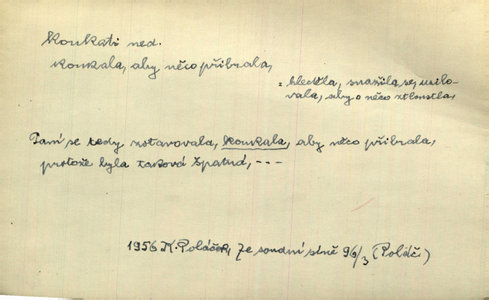 koukati ned.
koukala, aby něco přibrala,
= hleděla, snažila se, usilo-
vala, aby o něco ztloustla,
Paní se tedy ustarovala, koukala, aby něco přibrala,
protože byla taková špatná, ---
1956 K. Poláček, Ze soudní síně 96/3 (Poláč)